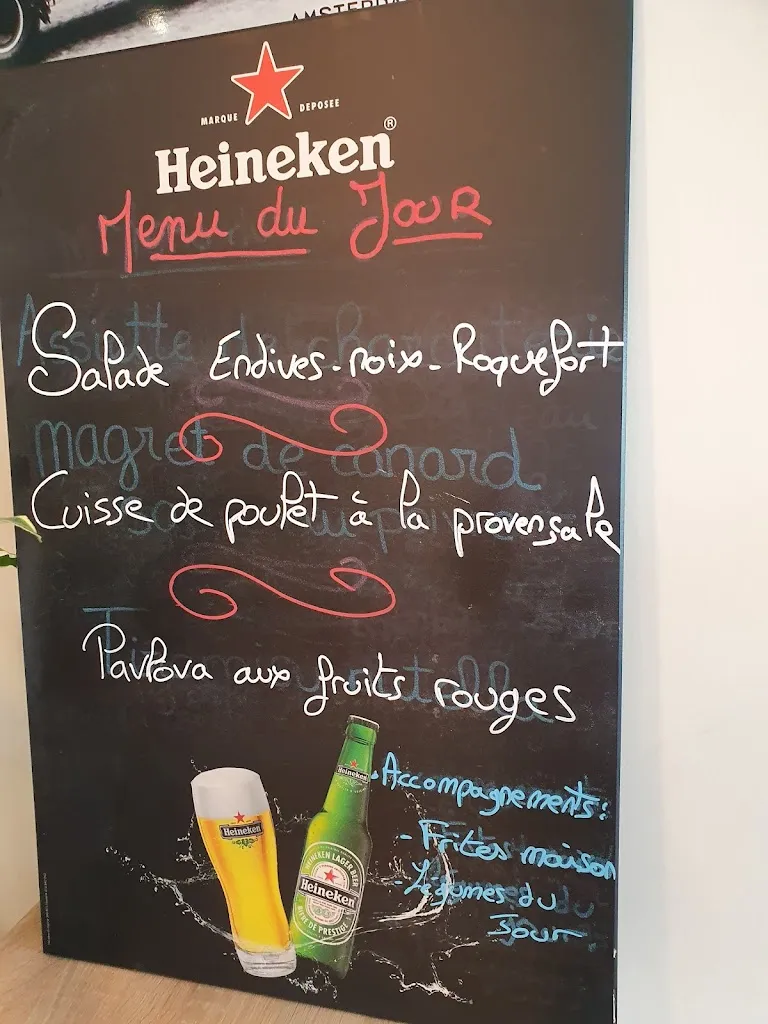 AMSTERDA
MARQUE DEPOSEE
Heineken®
Menu du Jour
Assiette de charcuterie
Salade Endives-noix-Roquefort
magret de canard
Cuisse de poulet à la provensale
Pavlova aux fruits rouges
• Accompagnements:
- Frites maison
- Légumes du
Jour
Heineken
Heineken
HEINEKEN LAGER BEER
Heineken
BIÈRE DE PRESTIGE